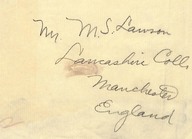 Mr. M.S. Lawson
Lancashire Coll.
Manchester
England